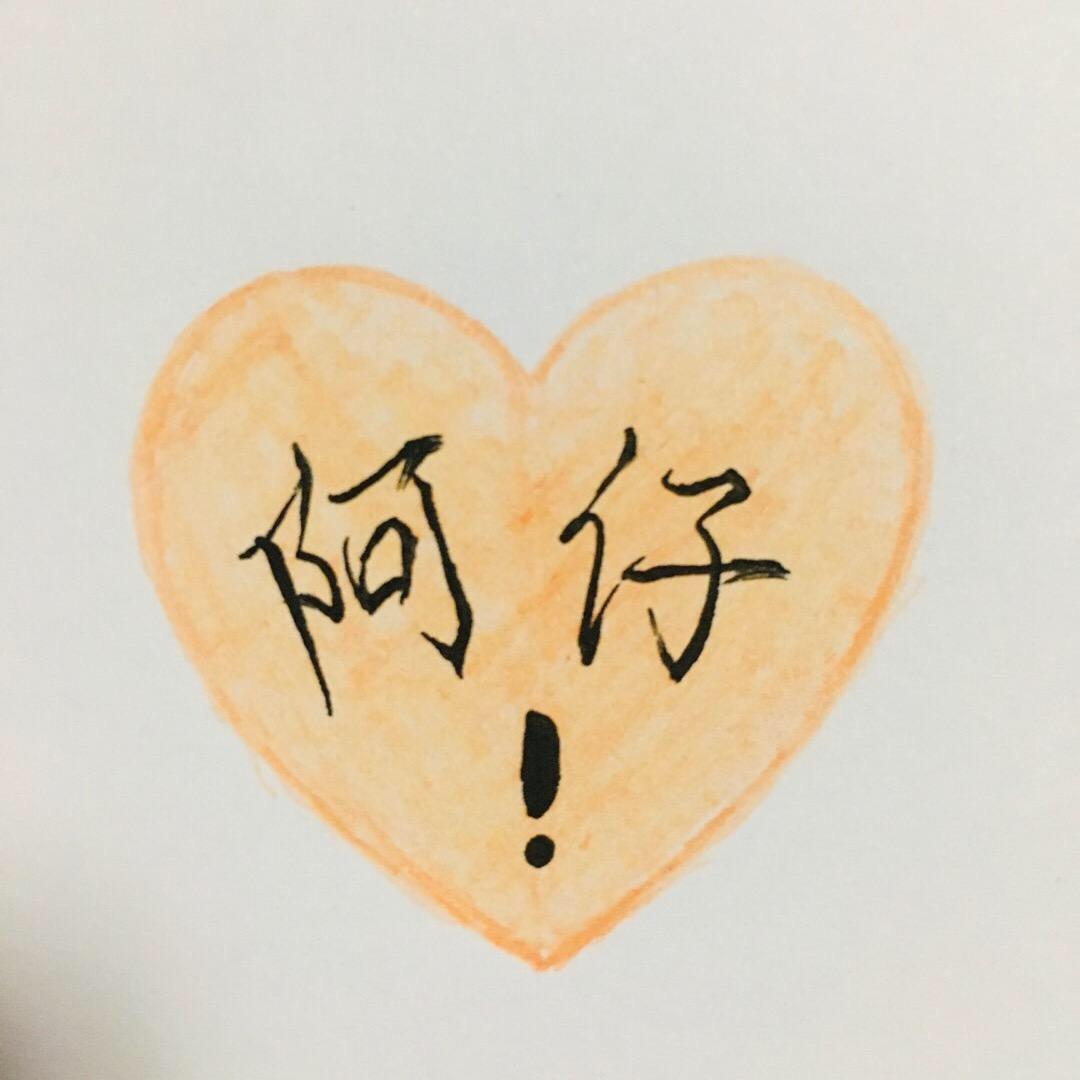 阿仔
!